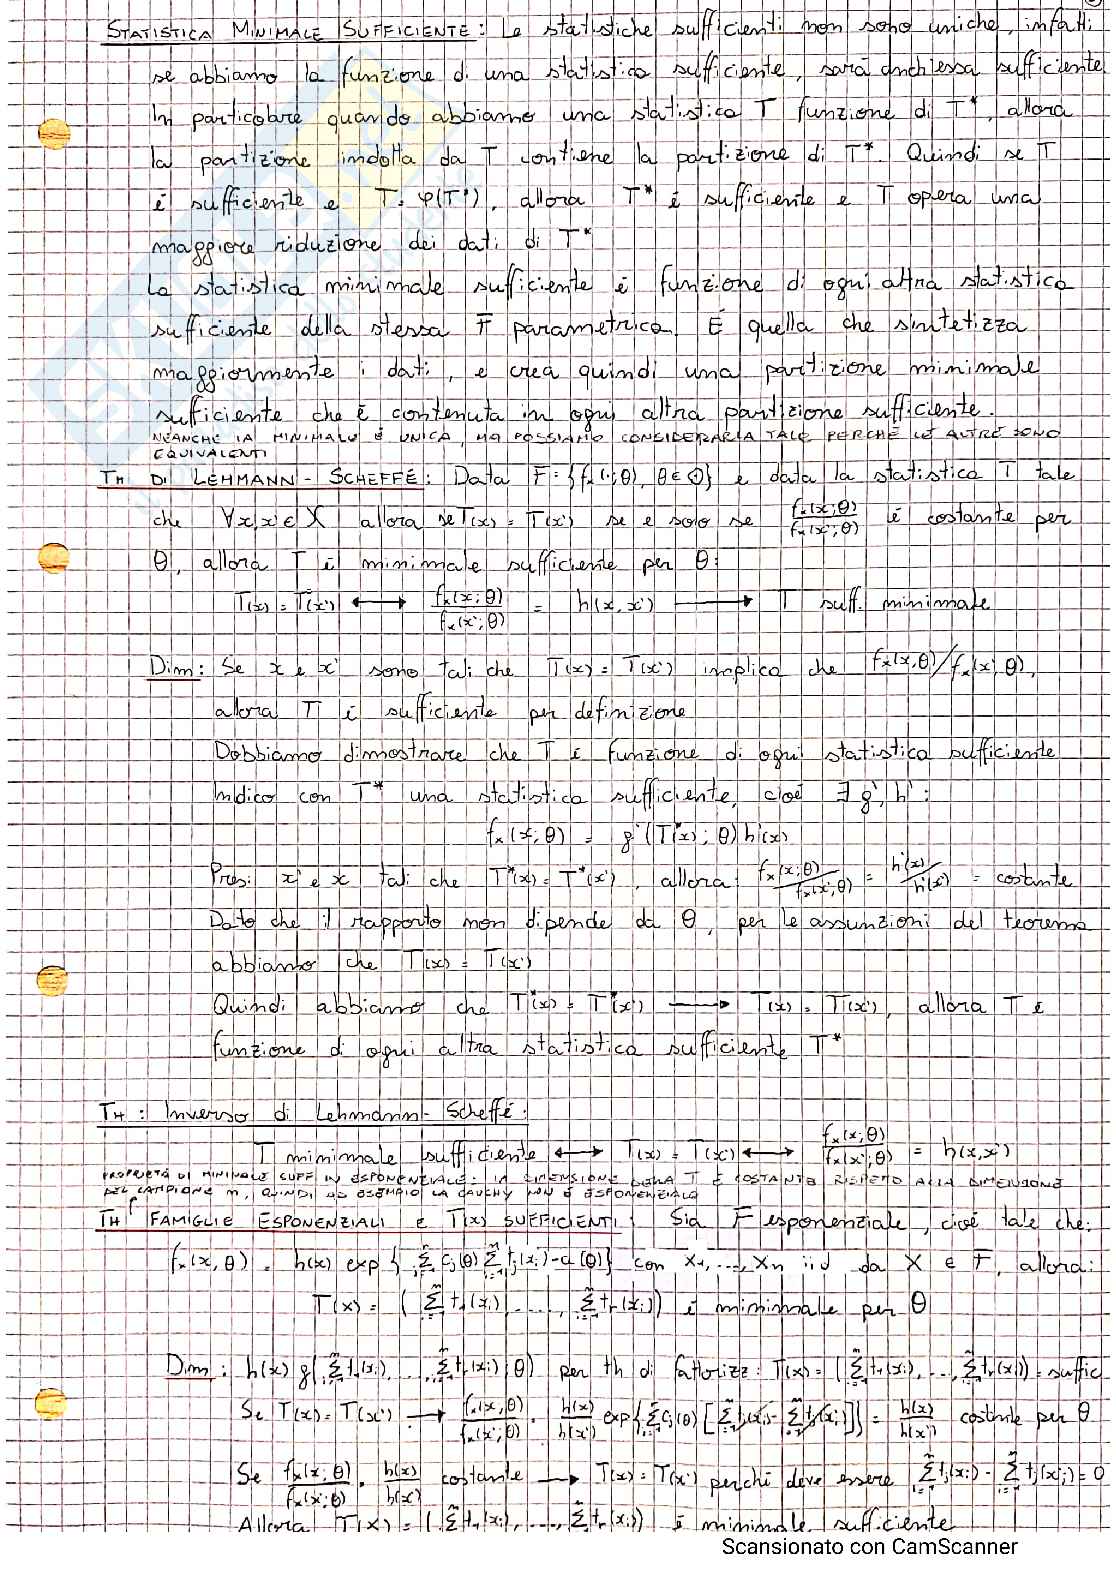 STATISTICA MINIMALE SUFFICIENTE: Le statistiche sufficienti non sono uniche, infatti
se abbiamo la funzione di una statistica sufficiente, sarà anch'essa sufficiente
In particolare quando abbiamo una statistica T funzione di T*, allora
la partizione indotta da T contiene la partizione di T*. Quindi se T
è sufficiente e T = φ(T*), allora T* è sufficiente e T opera una
maggiore riduzione dei dati di T*
La statistica minimale sufficiente è funzione di ogni altra statistica
sufficiente della stessa F parametrica. È quella che sintetizza
maggiormente i dati, e crea quindi una partizione minimale
sufficiente che è contenuta in ogni altra partizione sufficiente.
NEANCHE LA MINIMALE È UNICA, MA POSSIAMO CONSIDERARLA TALE PERCHÉ LE ALTRE SONO
EQUIVALENTI
TH DI LEHMANN-SCHEFFÉ: Data F = {fx(·;θ), θ∈Θ} e data la statistica T tale
che ∀x,x'∈X allora se T(x) = T(x') se e solo se fx(x;θ)/fx(x';θ) è costante per
θ, allora T è minimale sufficiente per θ:
T(x) = T(x') ⟷ fx(x;θ)/fx(x';θ) = h(x,x') ⟶ T suff. minimale
Dim: Se x e x' sono tali che T(x) = T(x') implica che fx(x,θ)/fx(x',θ),
allora T è sufficiente per definizione
Dobbiamo dimostrare che T è funzione di ogni statistica sufficiente
Indico con T* una statistica sufficiente, cioè ∃ g', h':
fx(x;θ) = g'(T*(x);θ) h'(x)
Presi x' e x tali che T*(x) = T*(x'), allora: fx(x;θ)/fx(x';θ) = h'(x)/h'(x') = costante
Dato che il rapporto non dipende da θ, per le assunzioni del teorema
abbiamo che T(x) = T(x')
Quindi abbiamo che T*(x) = T*(x') ⟶ T(x) = T(x'), allora T è
funzione di ogni altra statistica sufficiente T*
TH: Inverso di Lehmann-Scheffé:
T minimale sufficiente ⟷ T(x) = T(x') ⟷ fx(x;θ)/fx(x';θ) = h(x,x')
PROPRIETÀ DI MINIMALE SUFF IN ESPONENZIALE: LA DIMENSIONE DELLA T È COSTANTE RISPETTO ALLA DIMENSIONE
DEL CAMPIONE n, QUINDI AD ESEMPIO LA CAUCHY NON È ESPONENZIALE
TH FAMIGLIE ESPONENZIALI e T(x) SUFFICIENTI: Sia F esponenziale, cioè tale che:
fx(x,θ) = h(x) exp{Σcj(θ) Σtj(xi) - a(θ)} con X1,...,Xn iid da X e F, allora:
T(x) = (Σt1(xi),...,Σtr(xi)) è minimale per θ
Dim: h(x) g(Σt1(xi),...,Σtr(xi);θ) per th di fattorizz: T(x) = (Σt1(xi),...,Σtr(xi)) = suffic
Se T(x) = T(x') ⟶ fx(x,θ)/fx(x';θ) = h(x)/h(x') exp{Σcj(θ)[Σtj(xi) - Σtj(x'i)]} = h(x)/h(x') costante per θ
Se fx(x;θ)/fx(x';θ) = h(x)/h(x') costante ⟶ T(x) = T(x') perché deve essere Σtj(xi) - Σtj(x'i) = 0
Allora T(x) = (Σt1(xi),...,Σtr(xi)) è minimale sufficiente
Scansionato con CamScanner